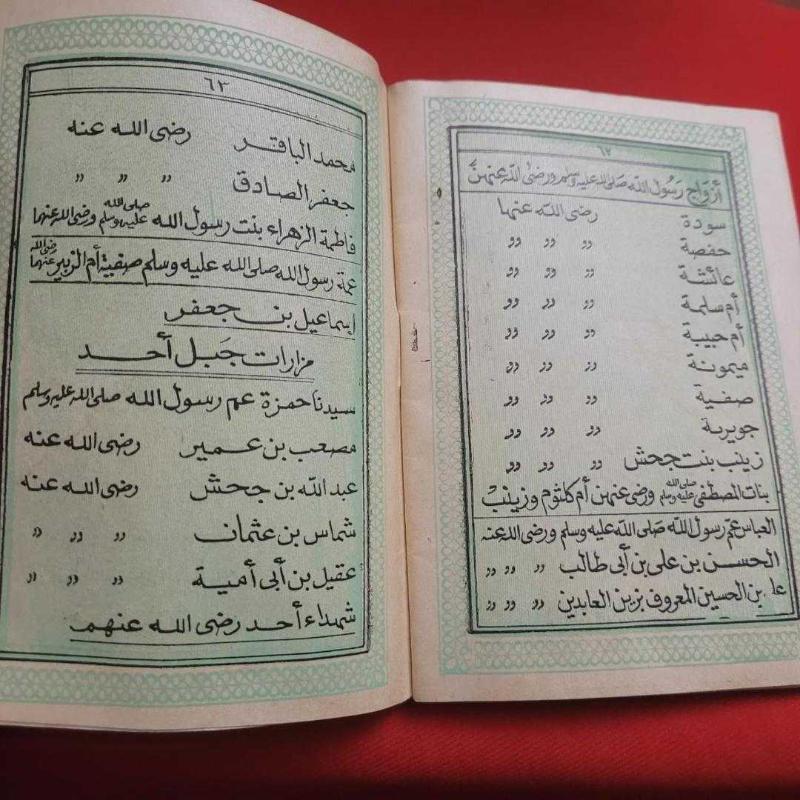 ٦٢
أزواج رسول الله صلى الله عليه وسلم ورضى الله عنهن
سودة رضى الله عنها
حفصة " " "
عائشة " " "
أم سلمة " " "
أم حبيبة " " "
ميمونة " " "
صفية " " "
جويرية " " "
زينب بنت جحش " " "
بنات المصطفى صلى الله عليه وسلم ورضى عنهن أم كلثوم وزينب
العباس عم رسول الله صلى الله عليه وسلم ورضى الله عنه
الحسن بن على بن أبى طالب " " "
على بن الحسين المعروف بزين العابدين " " "
٦٣
محمد الباقر رضى الله عنه
جعفر الصادق " " "
فاطمة الزهراء بنت رسول الله صلى الله عليه وسلم ورضى الله عنها
عمة رسول الله صلى الله عليه وسلم صفية أم الزبير رضى الله عنهما
إسماعيل بن جعفر
مزارات جبل أحد
سيدنا حمزة عم رسول الله صلى الله عليه وسلم
مصعب بن عمير رضى الله عنه
عبد الله بن جحش رضى الله عنه
شماس بن عثمان " " "
عقيل بن أبى أمية " " "
شهداء أحد رضى الله عنهم